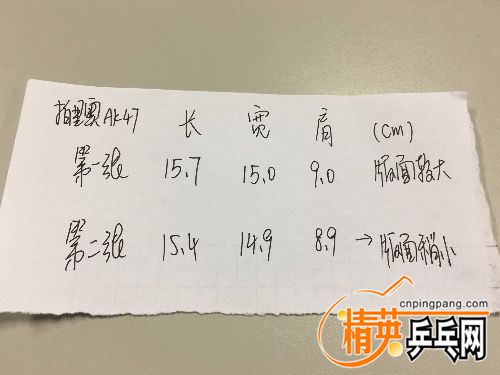 拍里奥AK47 长 宽 肩 (cm)
第一张 15.7 15.0 9.0 版面较大
第二张 15.4 14.9 8.9 → 版面稍小
cnpingpang.com
精英乒乓网